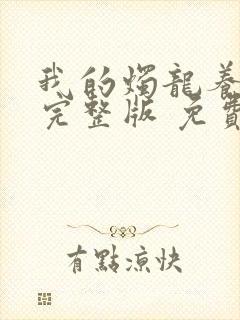 我的燭龍養
完整版 免費
有點涼快